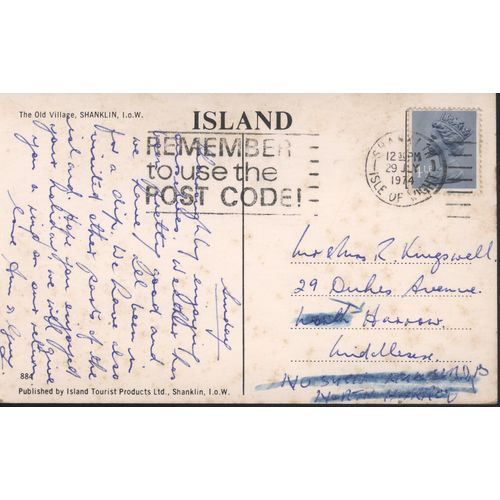 The Old Village, SHANKLIN, I.o.W.
ISLAND
REMEMBER
to use the
POST CODE!
SHANKLIN
12 PM
29 JLY
1974
ISLE OF WIGHT
Sunday
enjoying
ourselves. Weather has
been pretty good and
we have been in
for a dip. We have also
visited other parts of the
island. Hope you enjoyed
your holiday & we will give
you a ring on our return
love
Mr & Mrs R. Kingswell.
29 Dukes Avenue.
North Harrow.
Middlesex.
NO SUCH
NORTH HARROW
884
Published by Island Tourist Products Ltd., Shanklin, I.o.W.